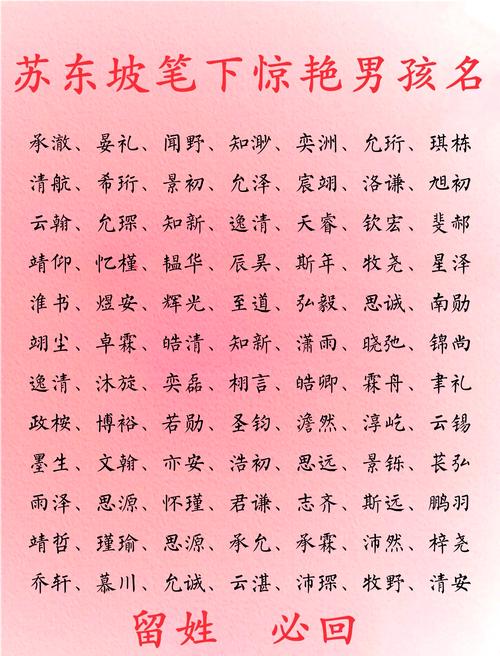 苏东坡笔下惊艳男孩名
承澈、晏礼、闻野、知渺、奕洲、允珩、琪栋
清航、希珩、景初、允泽、宸翊、洛谦、旭初
云翰、允琛、知新、逸清、天睿、钦宏、斐郝
靖仰、忆槿、韫华、辰昊、斯年、牧尧、星泽
淮书、煜安、辉光、至道、弘毅、思诚、南勋
翊尘、卓霖、皓清、知新、潇雨、晓弛、锦尚
逸清、沐旋、奕磊、栩言、皓卿、霖舟、聿礼
政桉、博裕、若勋、圣钧、澹然、淳屹、云锡
墨生、文翰、亦安、浩初、思远、景铄、苌弘
雨泽、思源、怀瑾、君谦、志齐、斯远、鹏羽
靖哲、瑾瑜、思源、承允、承霖、沛然、梓尧
乔轩、慕川、允诚、云湛、沛琛、牧野、清安
留姓 必回